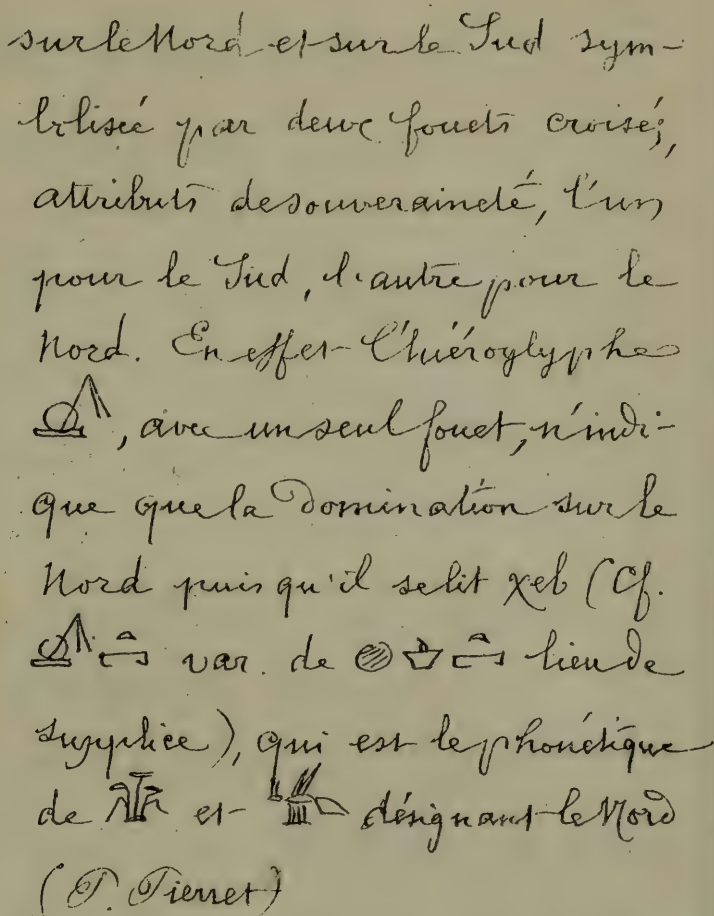 sur le Nord et sur le Sud sym-
bolisée par deux fouets croisés,
attributs de souveraineté, l'un
pour le Sud, l'autre pour le
Nord. En effet l'hiéroglyphe
, avec un seul fouet, n'indi-
que que la domination sur le
Nord puisqu'il se lit χeb (Cf.
var. de lieu de
supplice), qui est le phonétique
de et désignant le Nord
(P. Pierret)